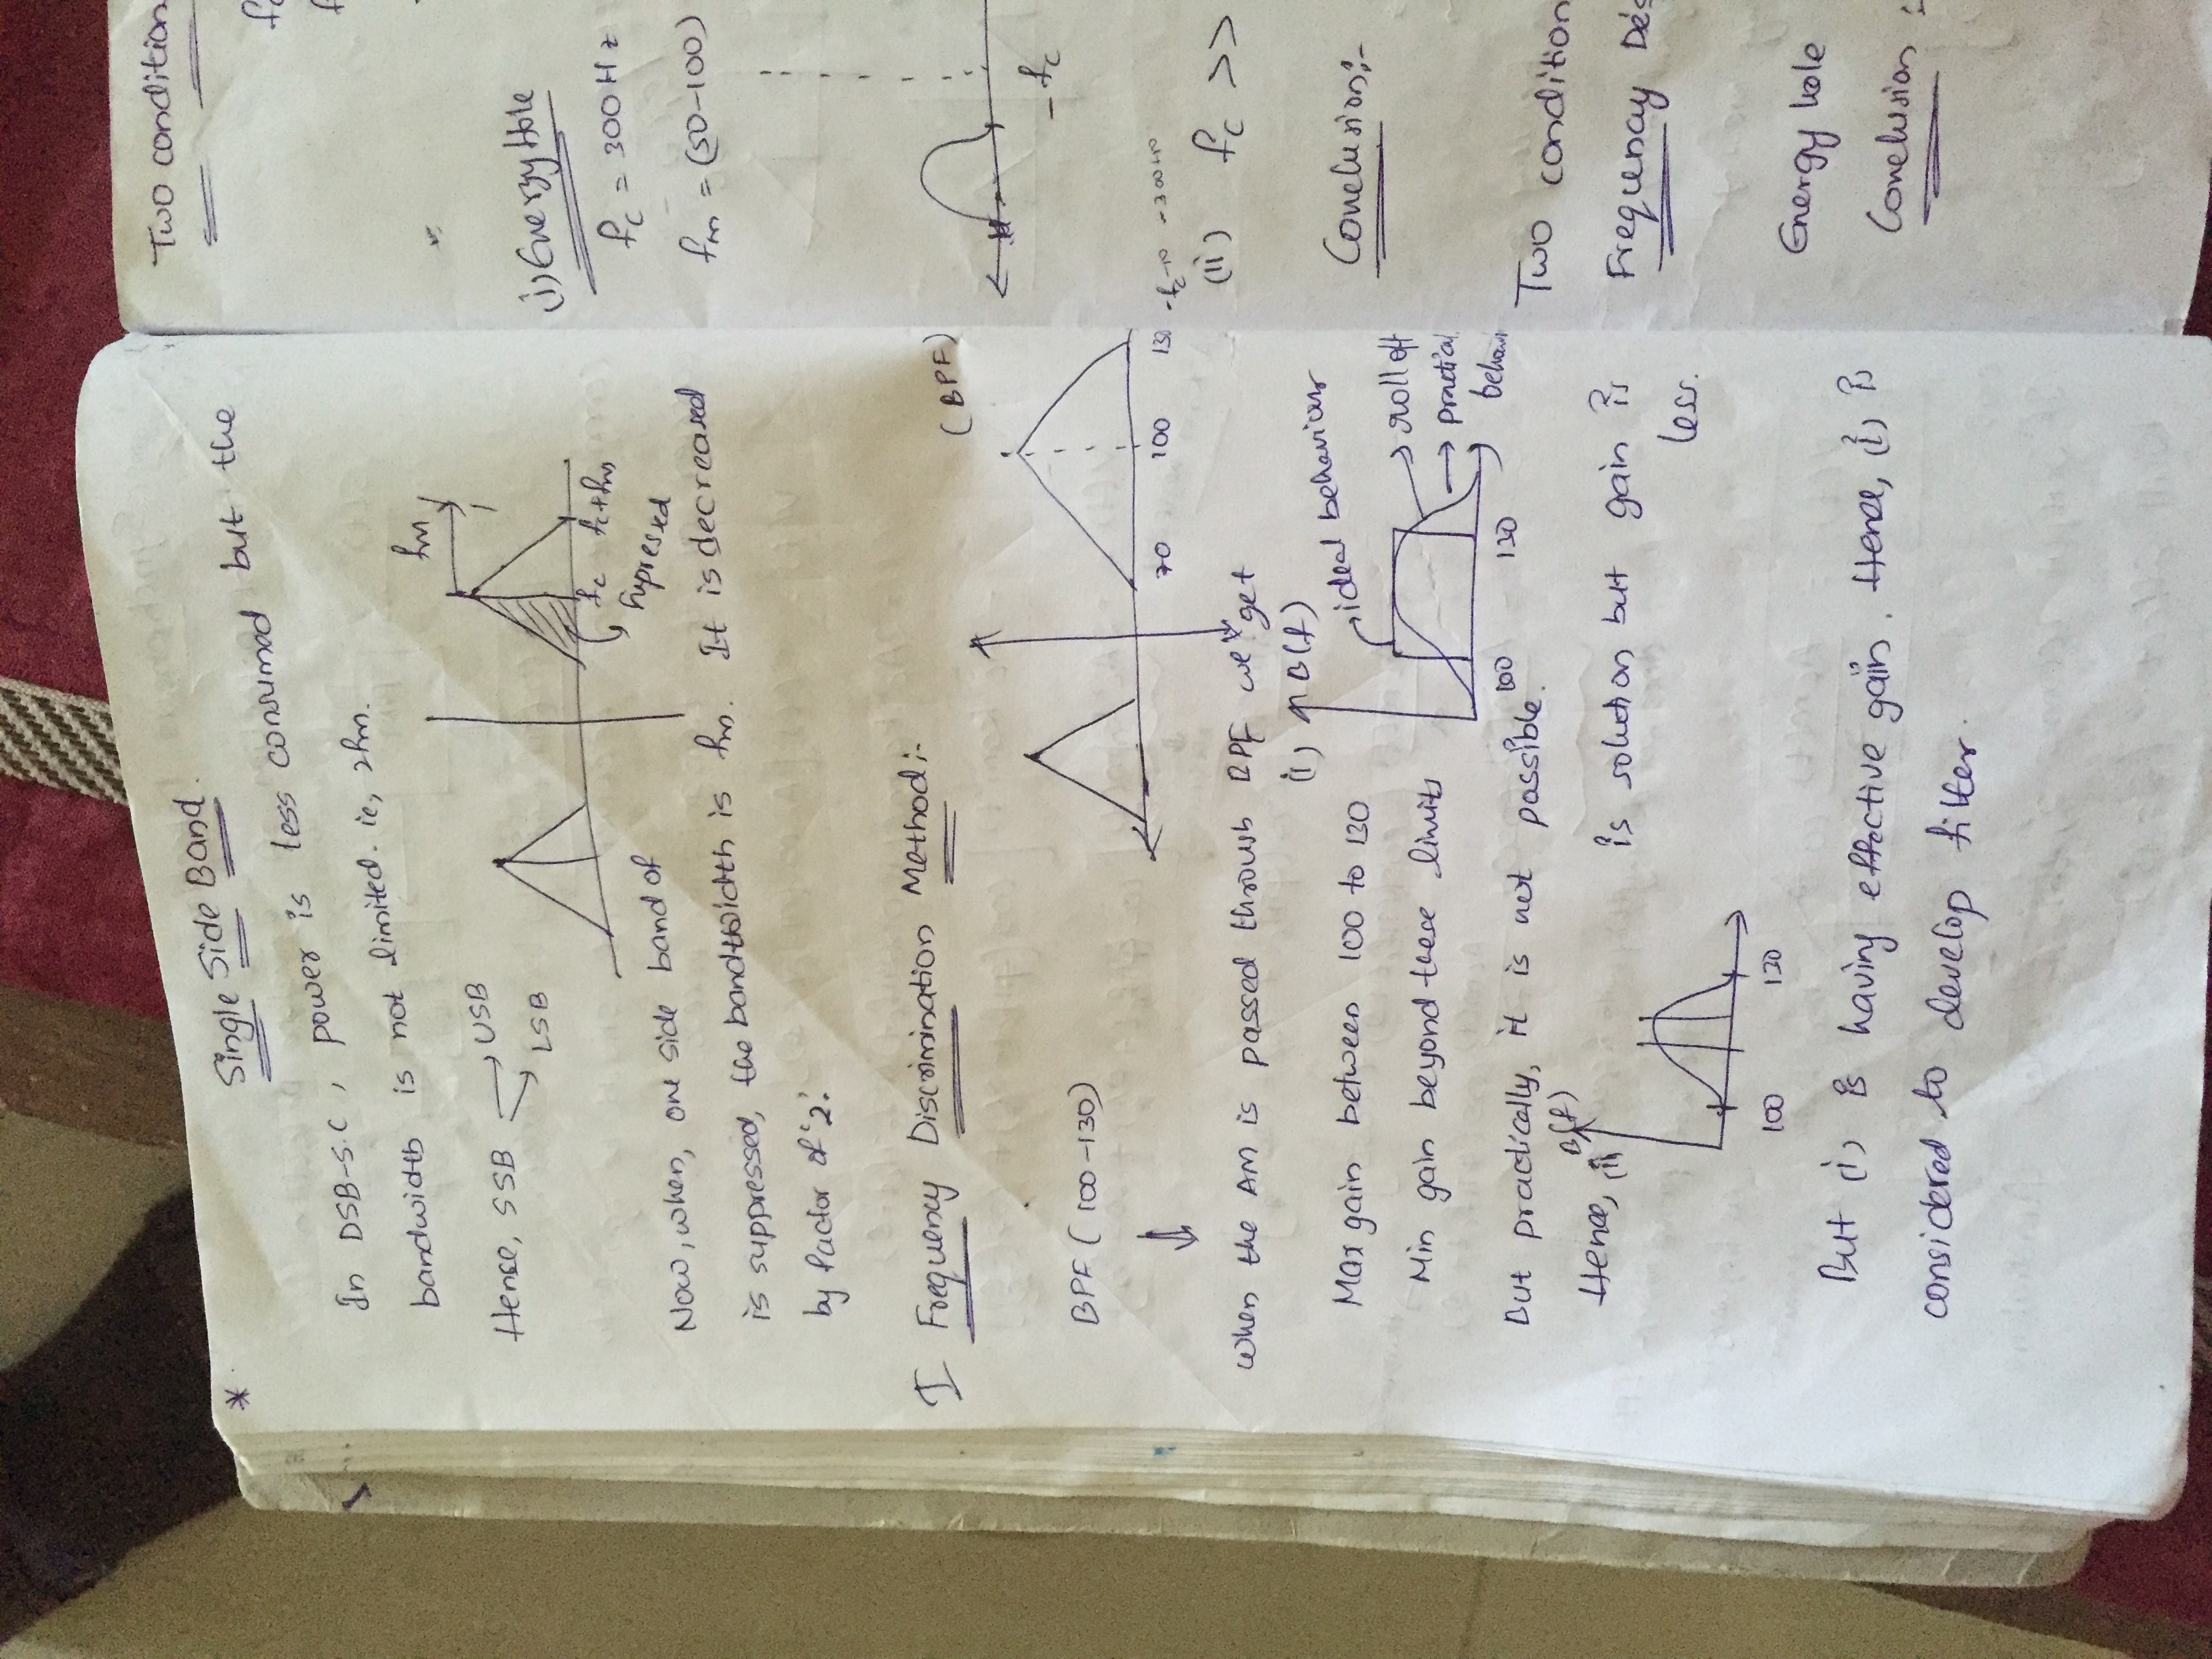 *
Single Side Band.
In DSB-S.C, power is less consumed but the
bandwidth is not limited. ie, 2fm.
fm
Hence, SSB → USB
→ LSB
fc fc+fm
Supressed
Now, when, one side band of
is suppressed, the bandwidth is fm. It is decreased
by factor of '2'.
I Frequency Discrimination Method:-
(BPF)
BPF (100-130)
70 100 130
When the AM is passed through BPF we get
(i) B(f)
ideal behaviour
Max gain between 100 to 130
roll off
Min gain beyond these limits
practical
behavi
100 130
But practically, it is not possible.
B(f)
Hence, (ii) is solution but gain is
less.
100 130
But (i) is having effective gain. Hence, (i) is
considered to develop filter.
Two condition
(i) Energy Hole
fc = 300Hz
fm = (50-100)
-fc
(ii) fc >>
Conclusion:-
Two condition
Frequenay Des
Energy hole
Conclusion :-